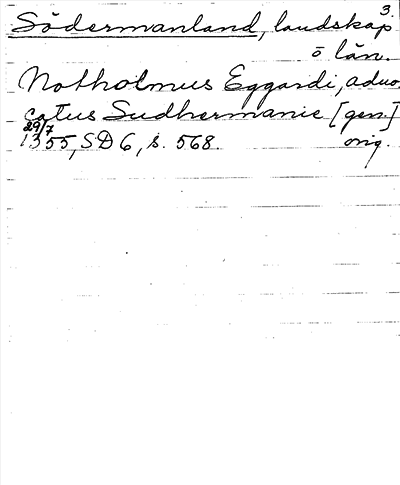 3.
Södermanland, landskap
o län.
Notholmus Eggardi, advo-
catus Sudhermanie [gen.]
29/7
1355, SD 6, s. 568. orig.